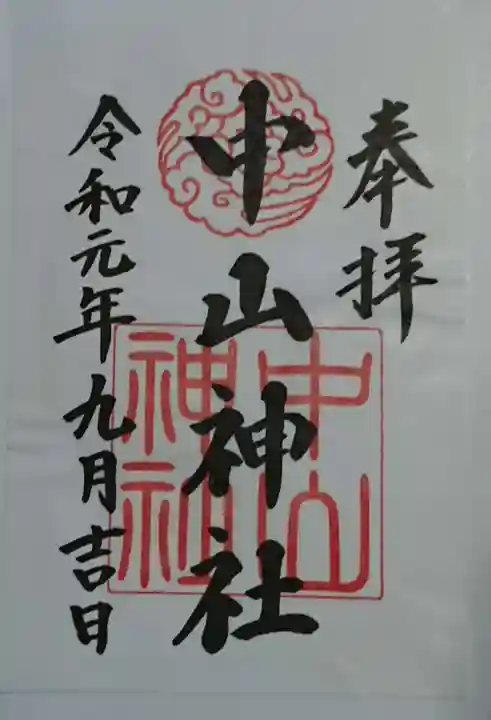 奉拝
中山神社
中山神社
令和元年九月吉日